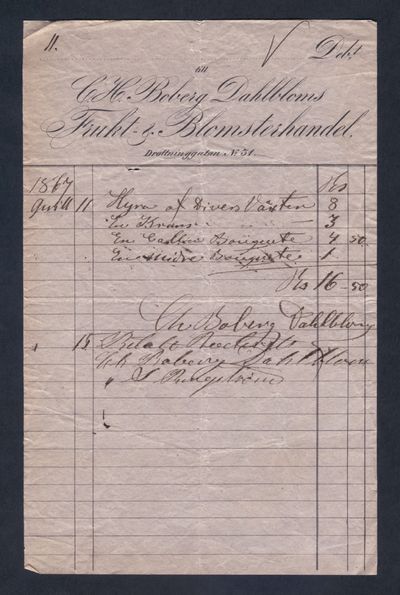 11.
Debt
till
C.H. Boberg Dahlbloms
Frukt- & Blomsterhandel.
Drottninggatan No 51.
1867 Rs
April 11 Hyra af Divers Växter 8
En Krans 3
En Bouquete 4 50
En mindre Bouquete 1
Rs 16 50
Ch Boberg Dahlblom
15 Betalt
Ch Boberg Dahlblom